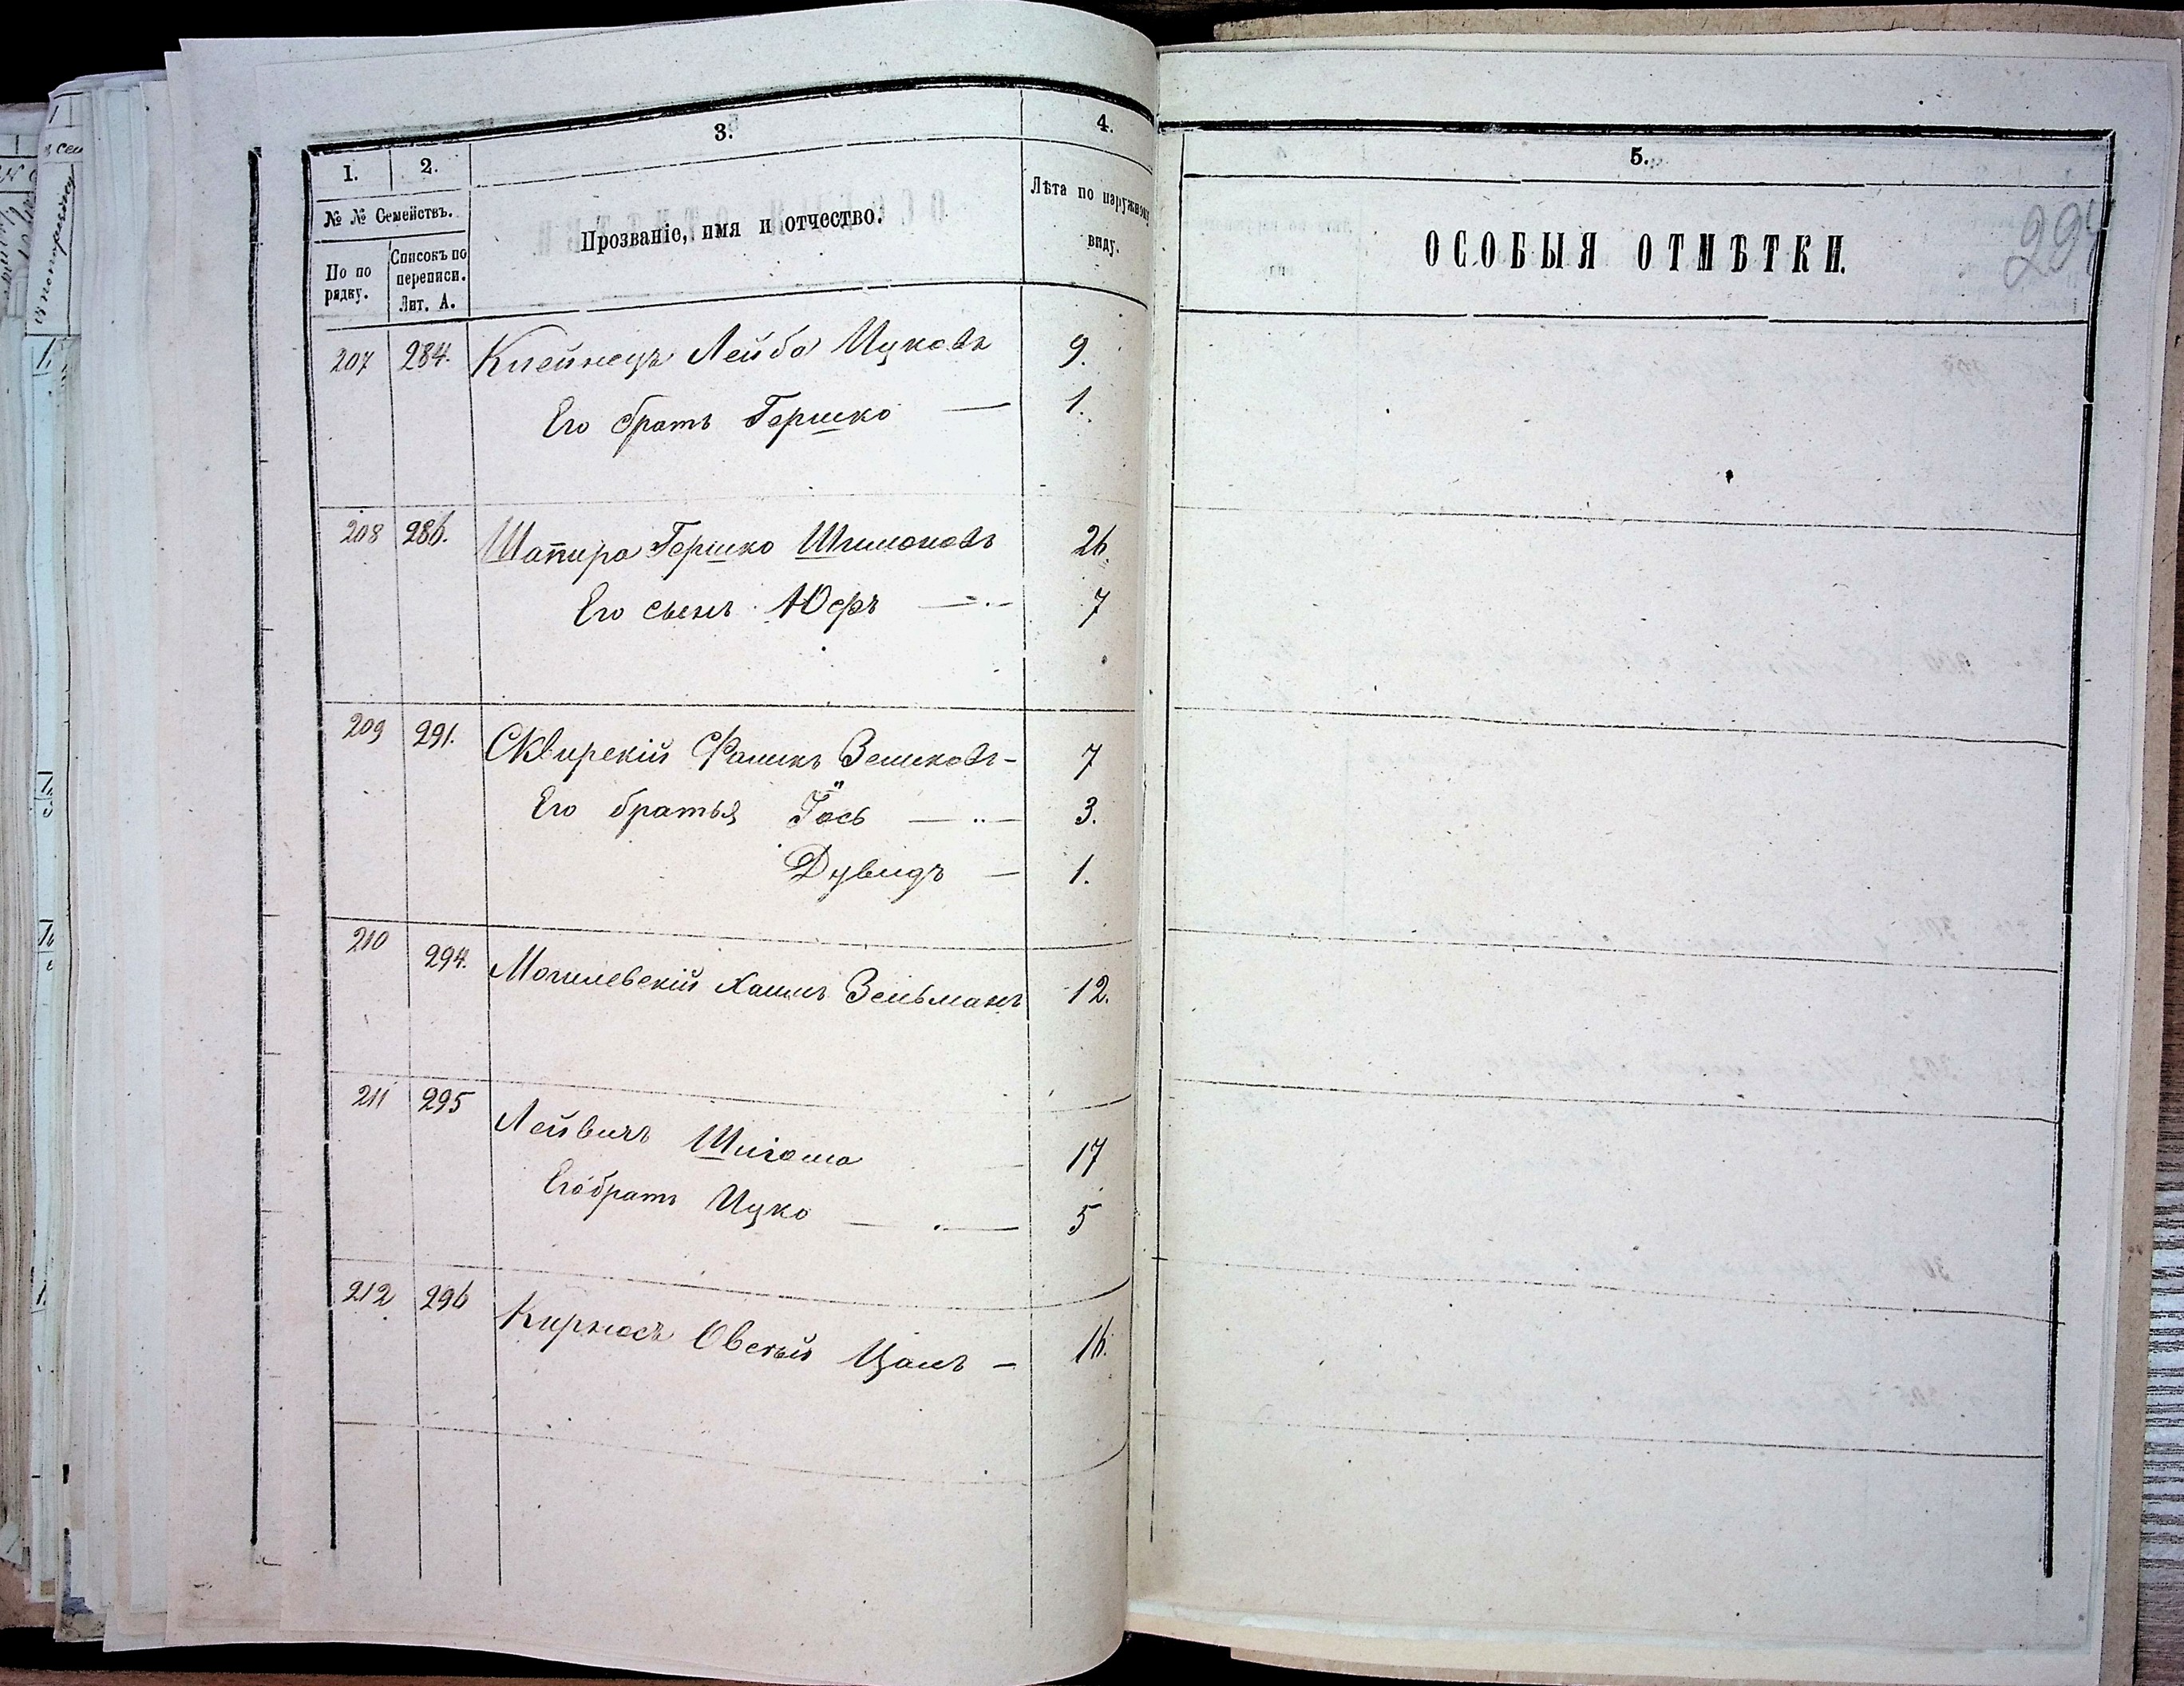 1. 2. 3. 4.
№ № Семействъ.
По по рядку.
Списокъ по переписи. Лит. А.
Прозваніе, имя и отчество.
Лѣта по наружному виду.
207 284. Клейнецъ Лейба Ицковъ 9.
Его братъ Гершко — 1.
208 286. Шапира Гершко Шимоновъ 26.
Его сынъ Юсфъ — 7
209 291. Сквирскій Фроимъ Зельковъ - 7
Его братья Іось — 3.
Дувидъ — 1.
210 294. Могилевскій Хаимъ Зельманъ 12.
211 295 Лейвичъ 17
Его братъ Ицко — 5
212 296 Кирносъ Овсей — 16.
5.
ОСОБЫЯ ОТМѢТКИ.